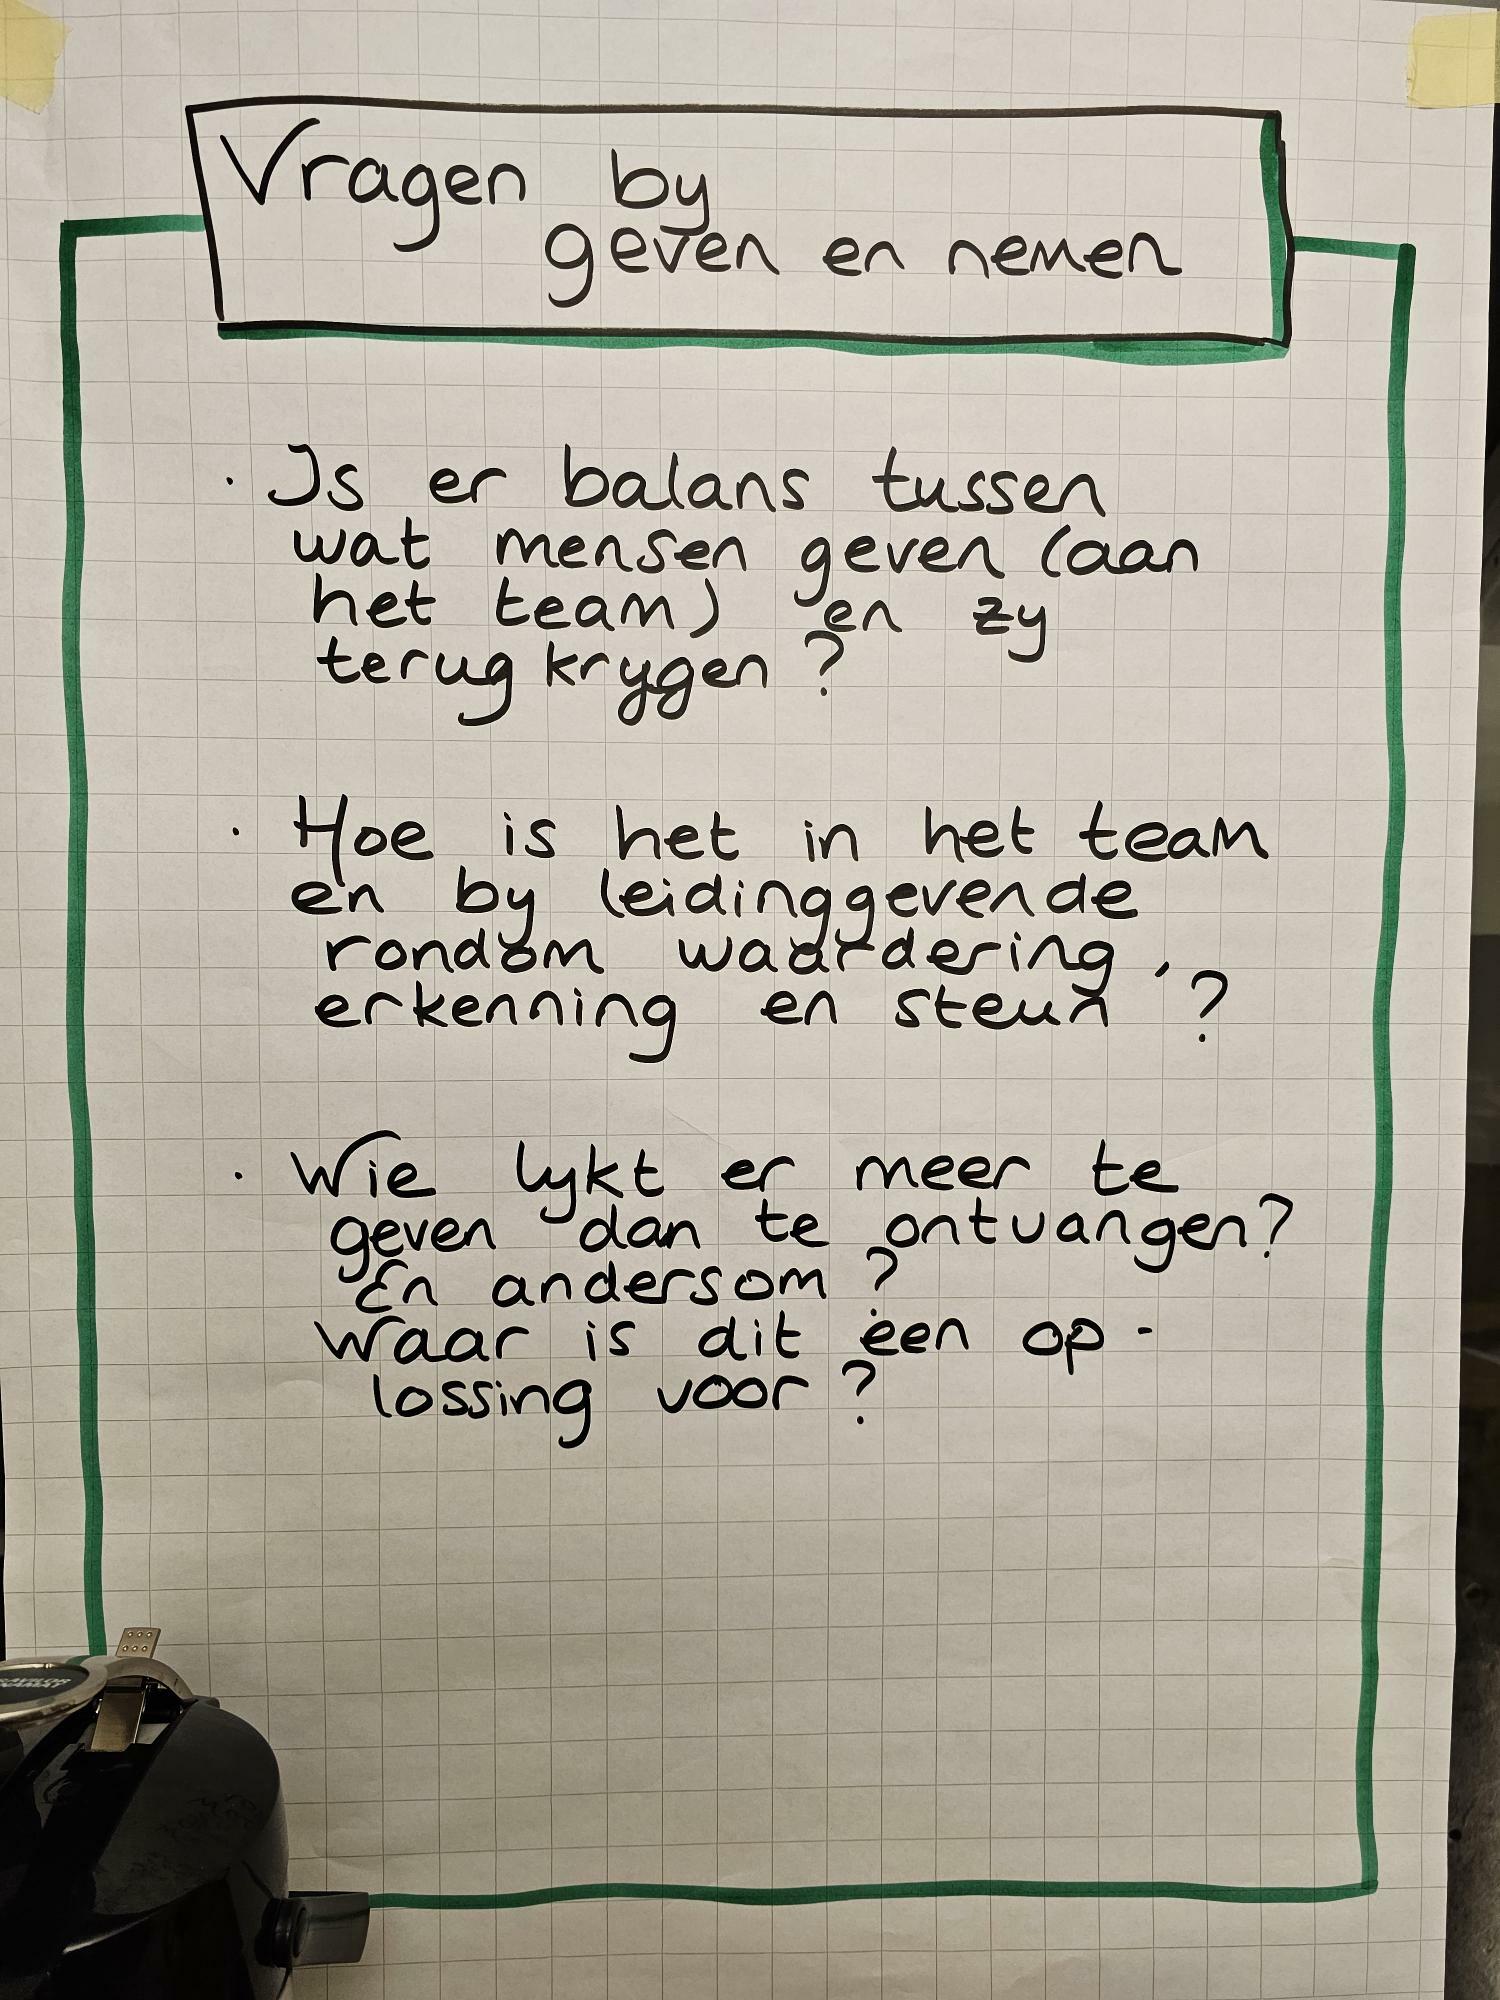 Vragen by
geven en nemen
· Is er balans tussen
wat mensen geven (aan
het team) en zy
terug krygen?
· Hoe is het in het team
en by leidinggevende
rondom waardering,
erkenning en steun?
· Wie lykt er meer te
geven dan te ontvangen?
En andersom?
Waar is dit een op-
lossing voor?